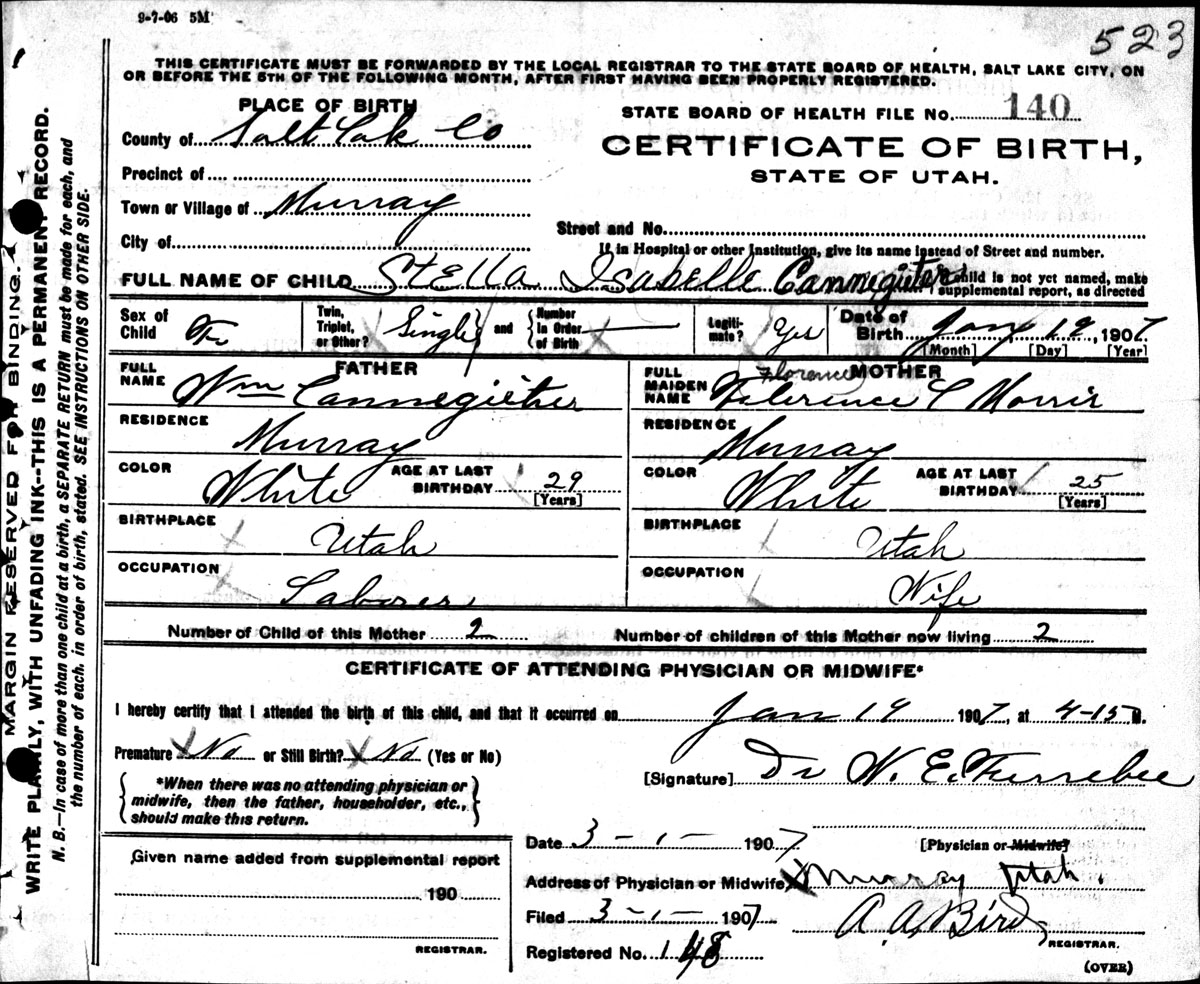 9-7-06 5M
523
THIS CERTIFICATE MUST BE FORWARDED BY THE LOCAL REGISTRAR TO THE STATE BOARD OF HEALTH, SALT LAKE CITY, ON
OR BEFORE THE 5TH OF THE FOLLOWING MONTH, AFTER FIRST HAVING BEEN PROPERLY REGISTERED.
PLACE OF BIRTH
STATE BOARD OF HEALTH FILE No. 140
County of Salt Lak Co
CERTIFICATE OF BIRTH,
STATE OF UTAH.
Precinct of
Town or Village of Murray
Street and No.
City of
If in Hospital or other Institution, give its name instead of Street and number.
FULL NAME OF CHILD Stella Isabelle Cannegieter
child is not yet named, make
supplemental report, as directed
Sex of Child Fe
Twin, Triplet, or Other? Single and Number in Order of Birth
Legitimate? Yes
Date of Birth Jan, 19, 1907
[Month] [Day] [Year]
FATHER
MOTHER
FULL NAME Wm Cannegiether
FULL MAIDEN NAME Felerence C Morris
Florence
RESIDENCE Murray
RESIDENCE Murray
COLOR White AGE AT LAST BIRTHDAY 29 [Years]
COLOR White AGE AT LAST BIRTHDAY 25 [Years]
BIRTHPLACE Utah
BIRTHPLACE Utah
OCCUPATION Laborer
OCCUPATION Wife
Number of Child of this Mother 2
Number of children of this Mother now living 2
CERTIFICATE OF ATTENDING PHYSICIAN OR MIDWIFE*
I hereby certify that I attended the birth of this child, and that it occurred on Jan 19 1907, at 4-15 M.
Premature No or Still Birth? No (Yes or No)
[Signature] Dr W. E. Ferrebee
*When there was no attending physician or
midwife, then the father, householder, etc.,
should make this return.
Date 3-1- 1907
[Physician or Midwife]
Given name added from supplemental report
190
REGISTRAR.
Address of Physician or Midwife Murray Utah.
Filed 3-1- 1907 A. A. Bird
REGISTRAR.
Registered No. 148
(OVER)
MARGIN RESERVED FOR BINDING.
WRITE PLAINLY, WITH UNFADING INK--THIS IS A PERMANENT RECORD.
N. B.—In case of more than one child at a birth, a SEPARATE RETURN must be made for each, and
the number of each, in order of birth, stated. SEE INSTRUCTIONS ON OTHER SIDE.